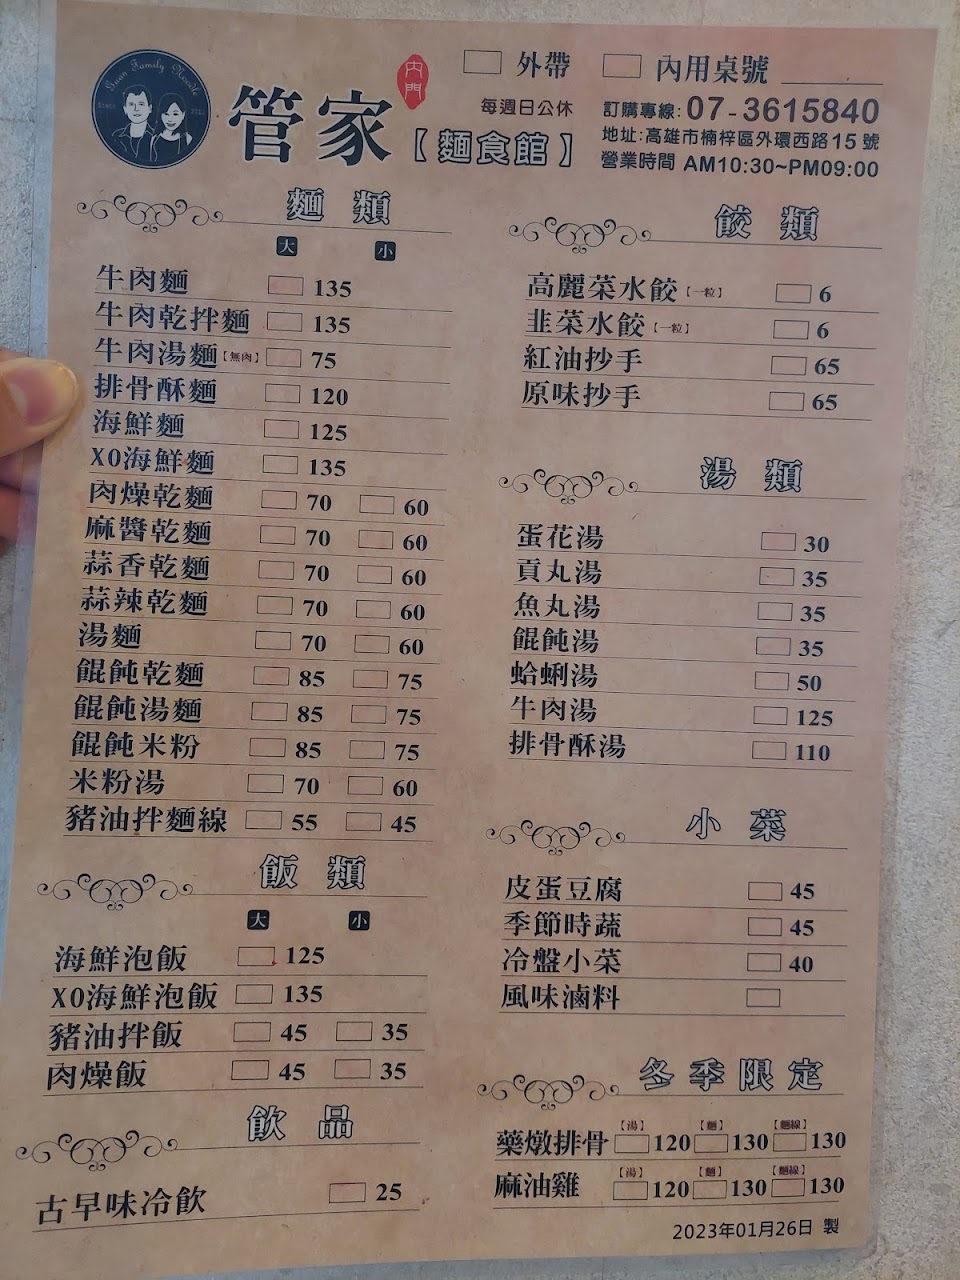 Guan Family Noodle
管家
內門
【麵食館】
外帶
內用桌號
每週日公休
訂購專線: 07-3615840
地址:高雄市楠梓區外環西路15號
營業時間 AM10:30~PM09:00
麵類
大 小
牛肉麵 135
牛肉乾拌麵 135
牛肉湯麵【無肉】 75
排骨酥麵 120
海鮮麵 125
XO海鮮麵 135
肉燥乾麵 70 60
麻醬乾麵 70 60
蒜香乾麵 70 60
蒜辣乾麵 70 60
湯麵 70 60
餛飩乾麵 85 75
餛飩湯麵 85 75
餛飩米粉 85 75
米粉湯 70 60
豬油拌麵線 55 45
飯類
大 小
海鮮泡飯 125
XO海鮮泡飯 135
豬油拌飯 45 35
肉燥飯 45 35
飲品
古早味冷飲 25
餃類
高麗菜水餃【一粒】 6
韭菜水餃【一粒】 6
紅油抄手 65
原味抄手 65
湯類
蛋花湯 30
貢丸湯 35
魚丸湯 35
餛飩湯 35
蛤蜊湯 50
牛肉湯 125
排骨酥湯 110
小菜
皮蛋豆腐 45
季節時蔬 45
冷盤小菜 40
風味滷料
冬季限定
【湯】 【麵】 【麵線】
藥燉排骨 120 130 130
【湯】 【麵】 【麵線】
麻油雞 120 130 130
2023年01月26日 製